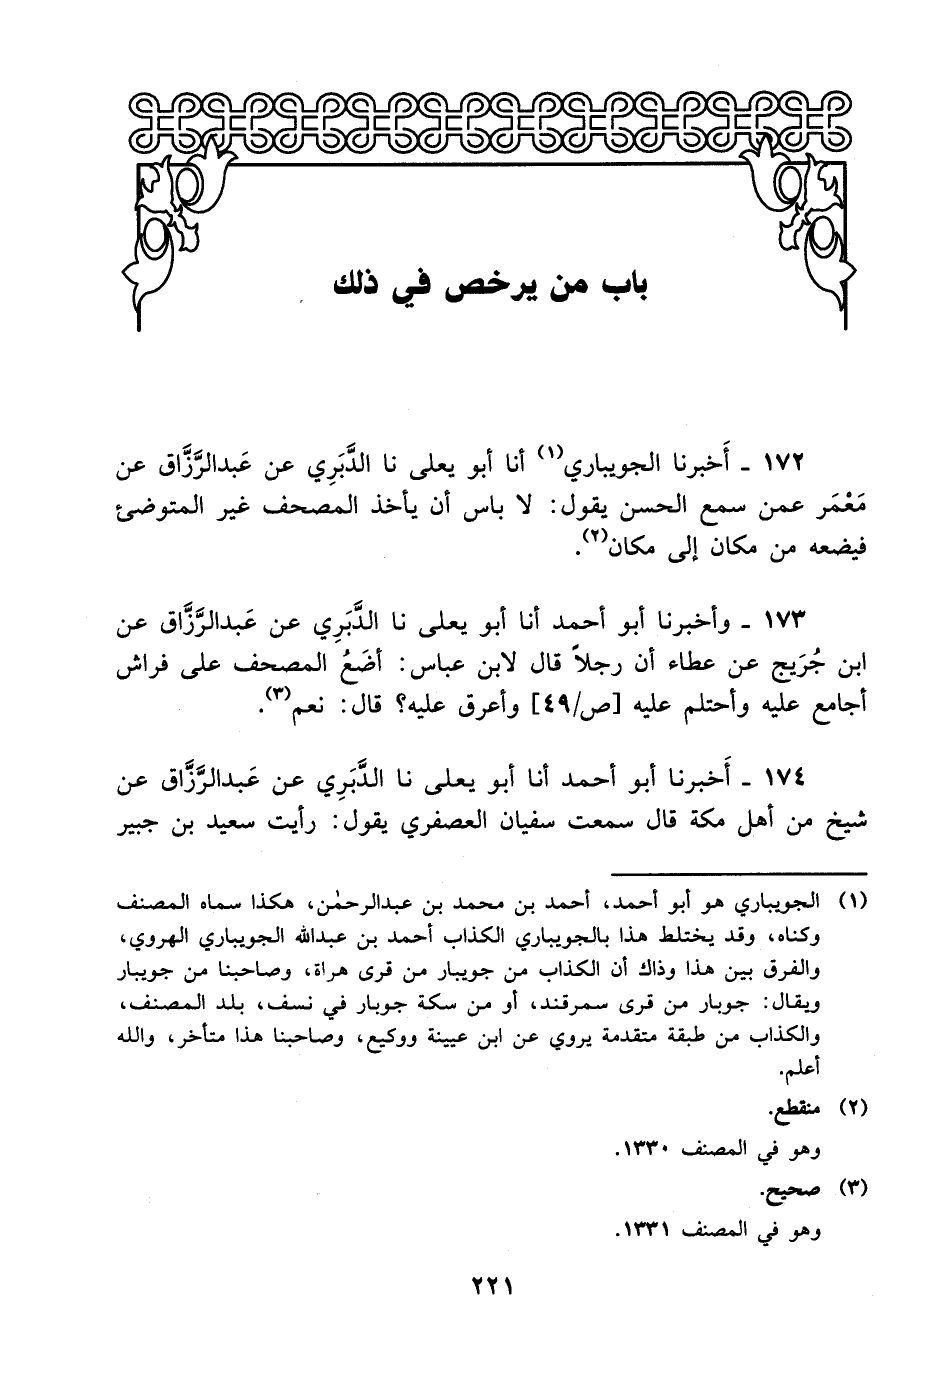 باب من يرخص في ذلك
١٧٢ ـ أَخبرنا الجويباري(١) أنا أبو يعلى نا الدَّبَرِي عن عَبدالرَّزَّاق عن
مَعْمَر عمن سمع الحسن يقول: لا باس أن يأخذ المصحف غير المتوضئ
فيضعه من مكان إلى مكان(٢).
١٧٣ ـ وأخبرنا أبو أحمد أنا أبو يعلى نا الدَّبَرِي عن عَبدالرَّزَّاق عن
ابن جُرَيج عن عطاء أن رجلاً قال لابن عباس: أضَعُ المصحف على فراش
أجامع عليه وأحتلم عليه [ص/٤٩] وأعرق عليه؟ قال: نعم(٣).
١٧٤ ـ أَخبرنا أبو أحمد أنا أبو يعلى نا الدَّبَرِي عن عَبدالرَّزَّاق عن
شيخ من أهل مكة قال سمعت سفيان العصفري يقول: رأيت سعيد بن جبير
(١) الجويباري هو أبو أحمد، أحمد بن محمد بن عبدالرحمٰن، هكذا سماه المصنف
وكناه، وقد يختلط هذا بالجويباري الكذاب أحمد بن عبدالله الجويباري الهروي،
والفرق بين هذا وذاك أن الكذاب من جويبار من قرى هراة، وصاحبنا من جويبار
ويقال: جوبار من قرى سمرقند، أو من سكة جوبار في نسف، بلد المصنف،
والكذاب من طبقة متقدمة يروي عن ابن عيينة ووكيع، وصاحبنا هذا متأخر، والله
أعلم.
(٢) منقطع.
وهو في المصنف ١٣٣٠.
(٣) صحيح.
وهو في المصنف ١٣٣١.
٢٢١